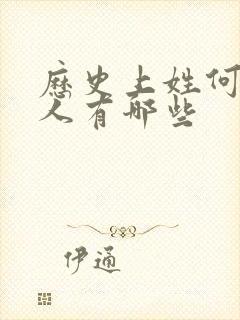 歷史上姓何
人有那些
伊通